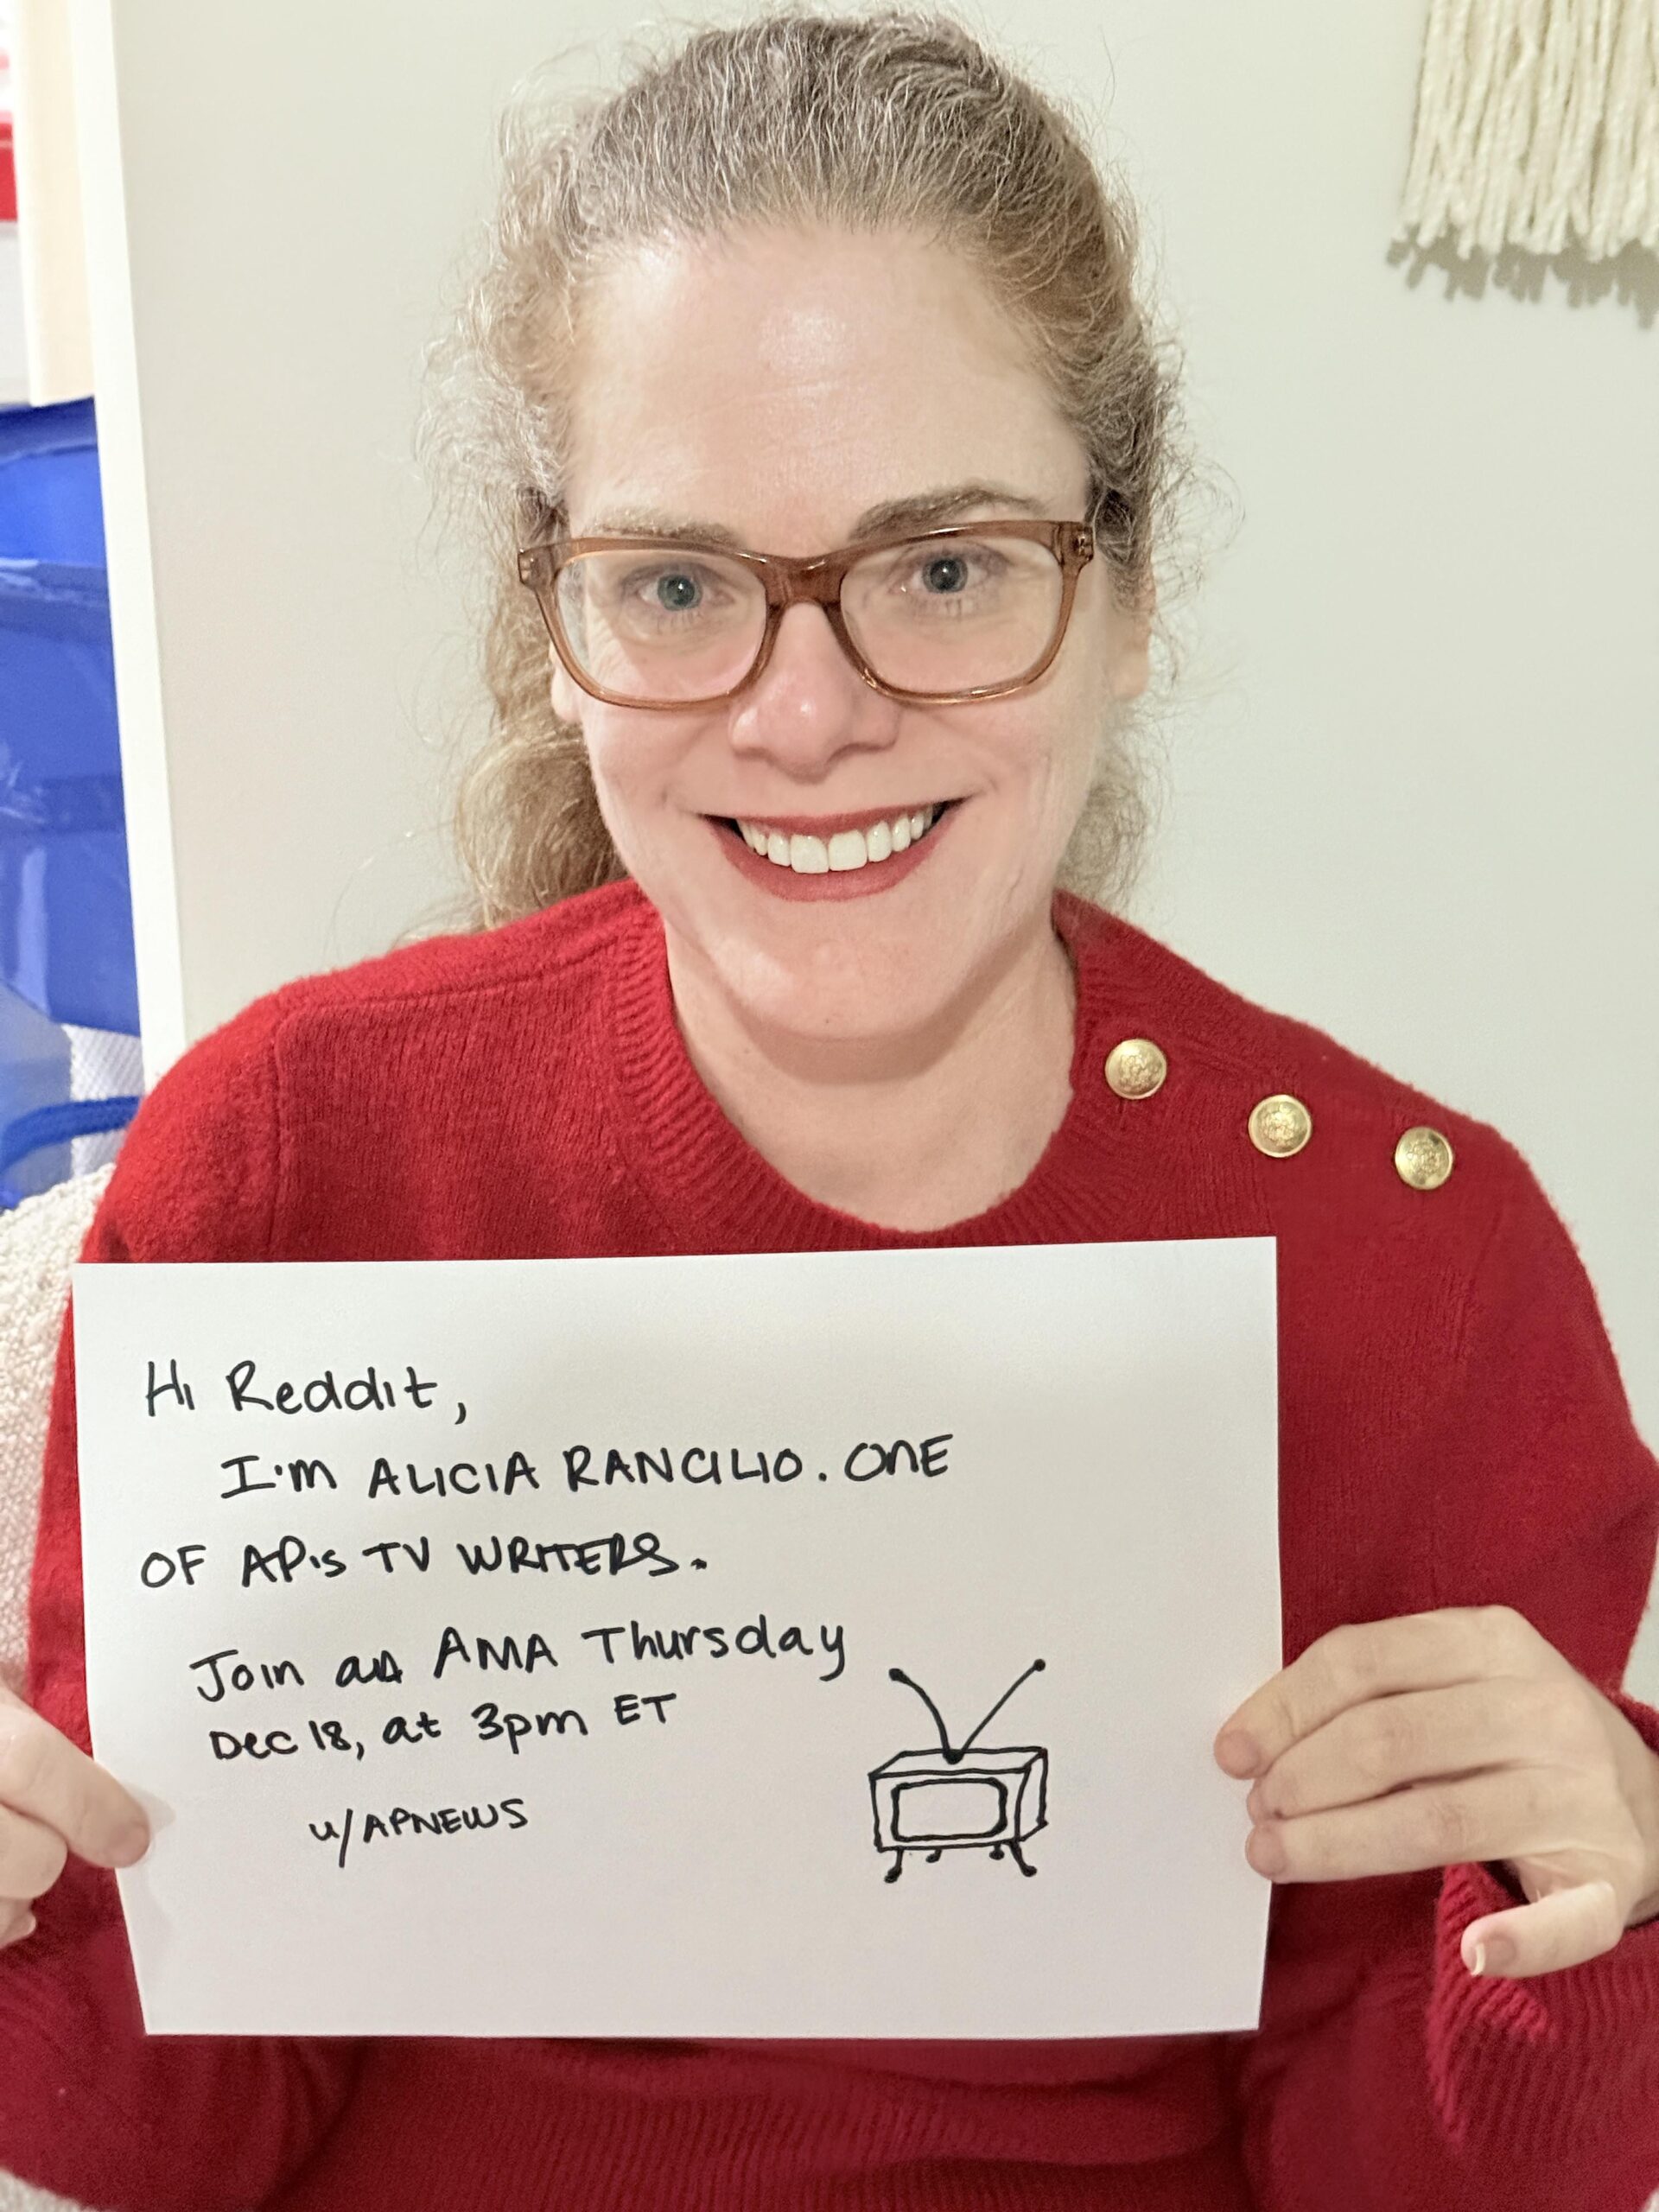 Hi Reddit,
I'm ALICIA RANCILIO. ONE
OF AP's TV WRITERS.
Join an AMA Thursday
Dec 18, at 3pm ET
u/APNEWS